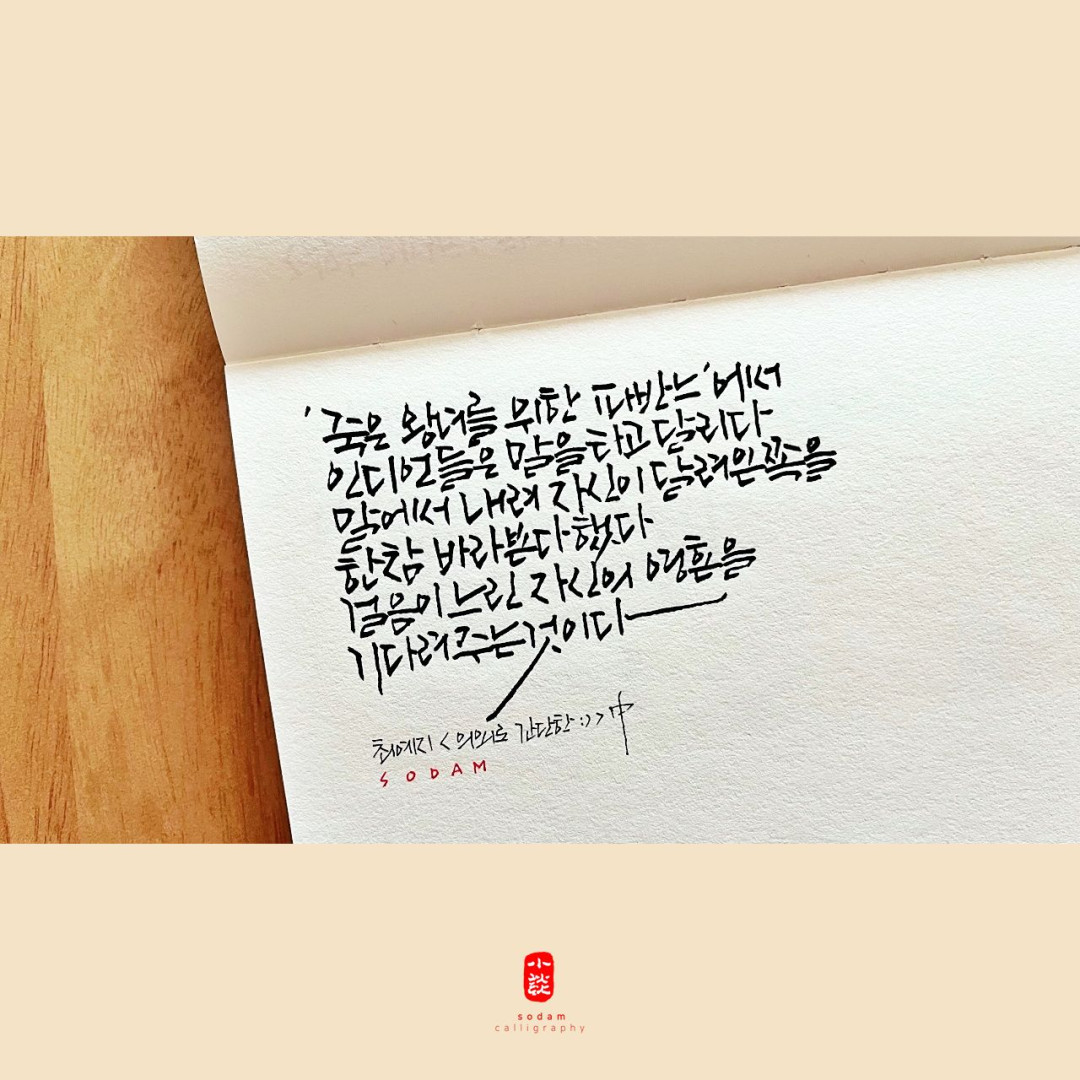 '죽은 왕녀를 위한 파반느'에서
인디언들은 말을 타고 달리다
말에서 내려 자신이 달려온 쪽을
한참 바라본다 했다
걸음이 느린 자신의 영혼을
기다려주는 것이다
최예지 <의외로 간단한 :)> 中
SODAM
小談
sodam
calligraphy